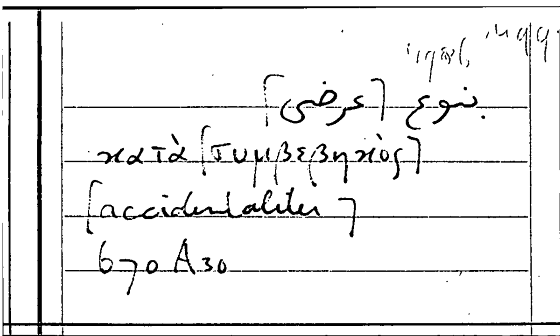 بنوع [عرضى]
κατὰ [συμβεβηκὸς]
[accidentaliter]
670 A 30